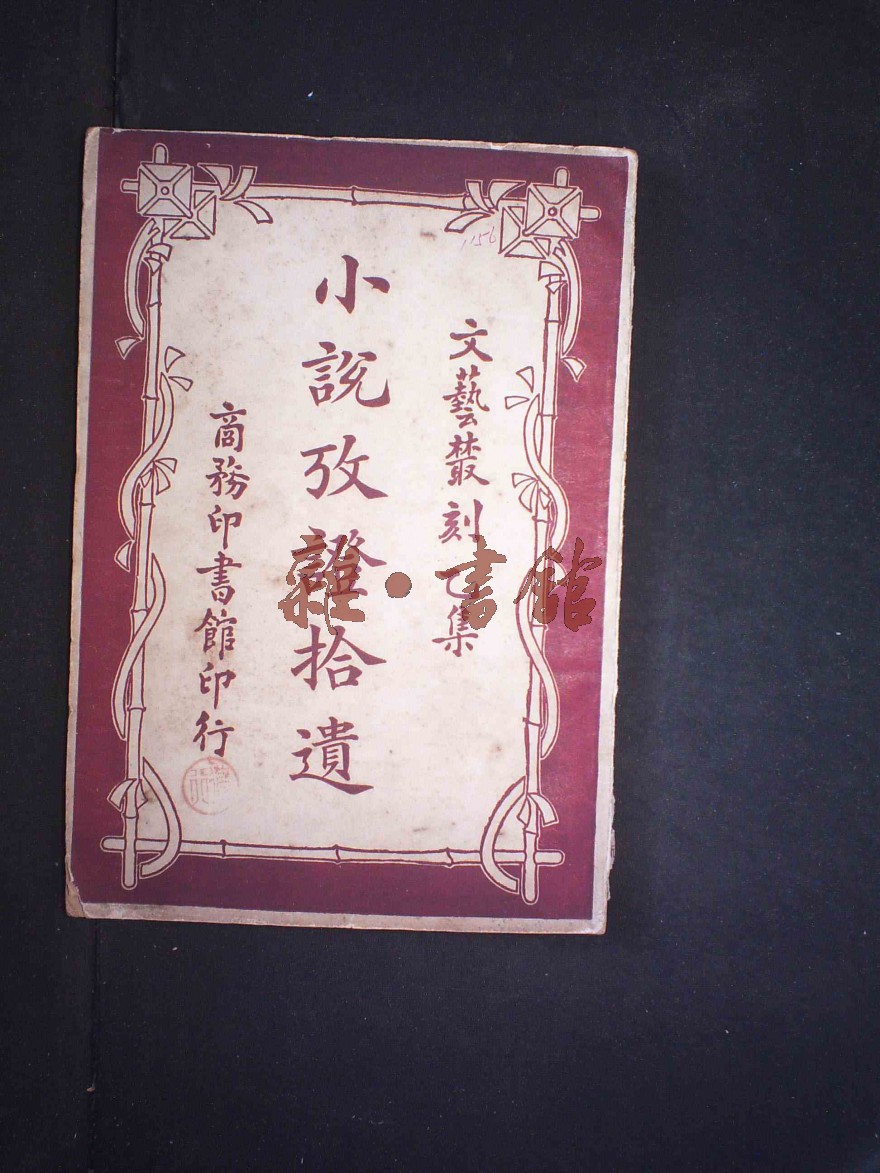 文藝叢刻乙集
小說攷證拾遺
商務印書館印行
雜·書館
1156